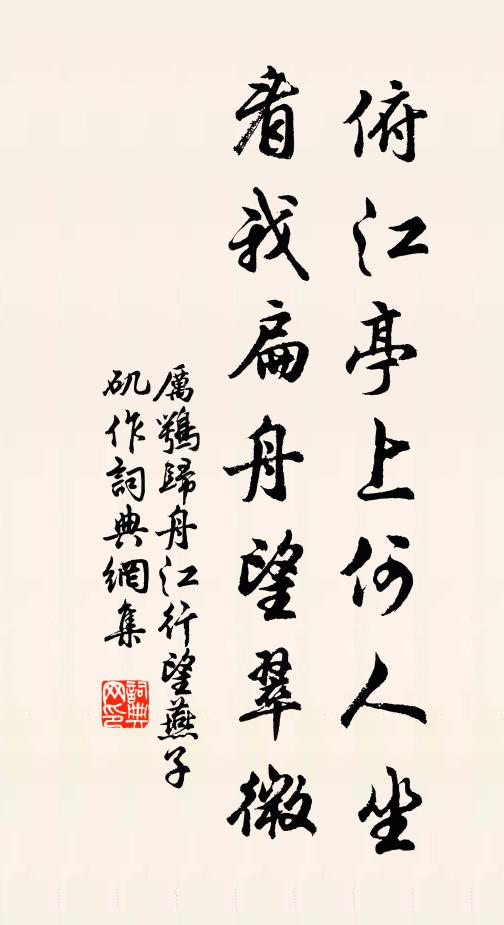 俯江亭上何人坐
看我扁舟望翠微
厲鶚歸舟江行望燕子
磯作詞典網集
詞典
网印